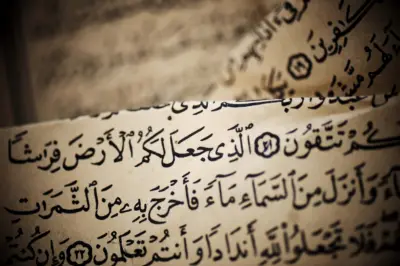 كَٰفِرِينَ ١٩
كُمْ تَتَّقُونَ ٢١ ٱلَّذِى جَعَلَ لَكُمُ ٱلْأَرْضَ فِرَٰشًا
وَأَنزَلَ مِنَ ٱلسَّمَآءِ مَآءً فَأَخْرَجَ بِهِۦ مِنَ ٱلثَّمَرَٰتِ
فَلَا تَجْعَلُوا۟ لِلَّهِ أَندَادًا وَأَنتُمْ تَعْلَمُونَ ٢٢ وَإِن كُنتُمْ